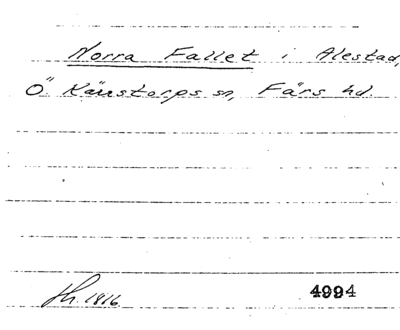 Norra Fallet i Alestad,
Ö Kärrstorps sn, Färs hd.
Sh. 1816 4994